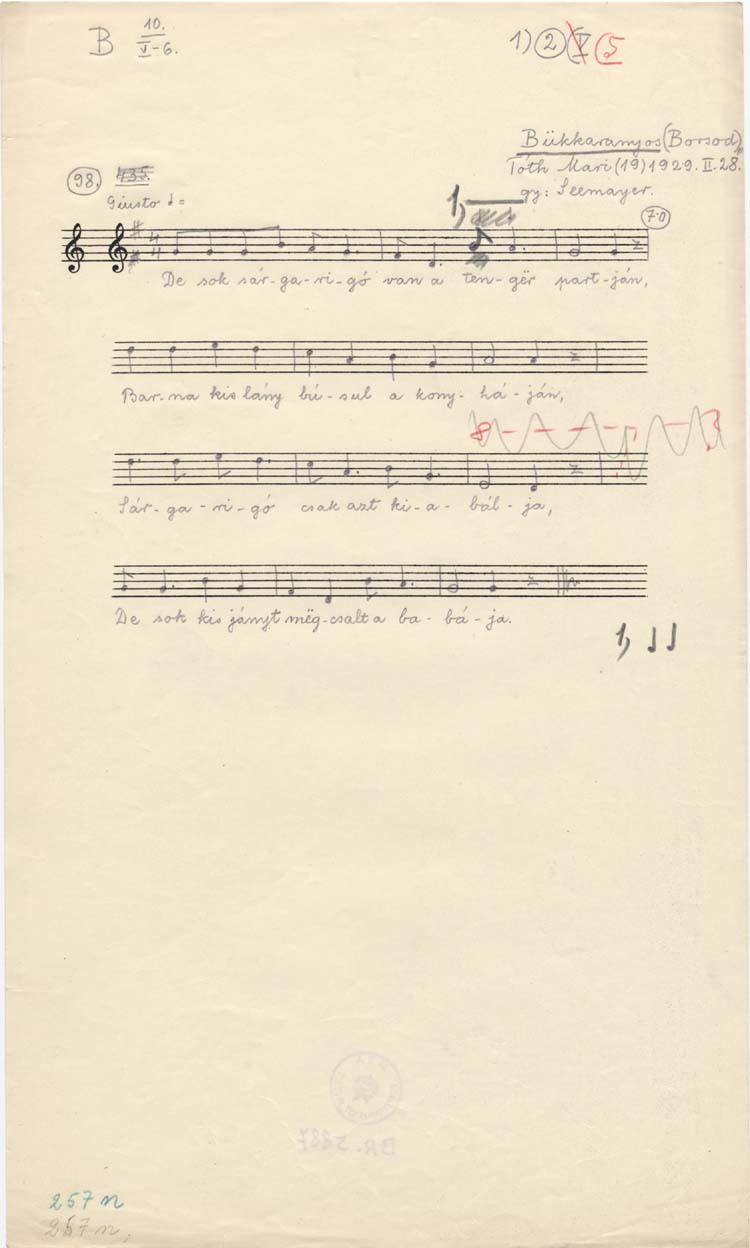 B 10. V-6.
1) 2 V 5
Bükkaranyos (Borsod)
Tóth Mari (19) 1929. II. 28.
gy: Seemayer.
98, 435.
Giusto ♩=
1,
7-0
4/4
De sok sár-ga-ri-gó van a ten-gër part-ján,
Bar-na kis lány bú-sul a kony-há-ján,
8
Sár-ga-ri-gó csak azt ki-a-bál-ja,
De sok kis jányt mëg-csalt a ba-bá-ja.
1, ♩♩
BR. 5887
257n
257n,